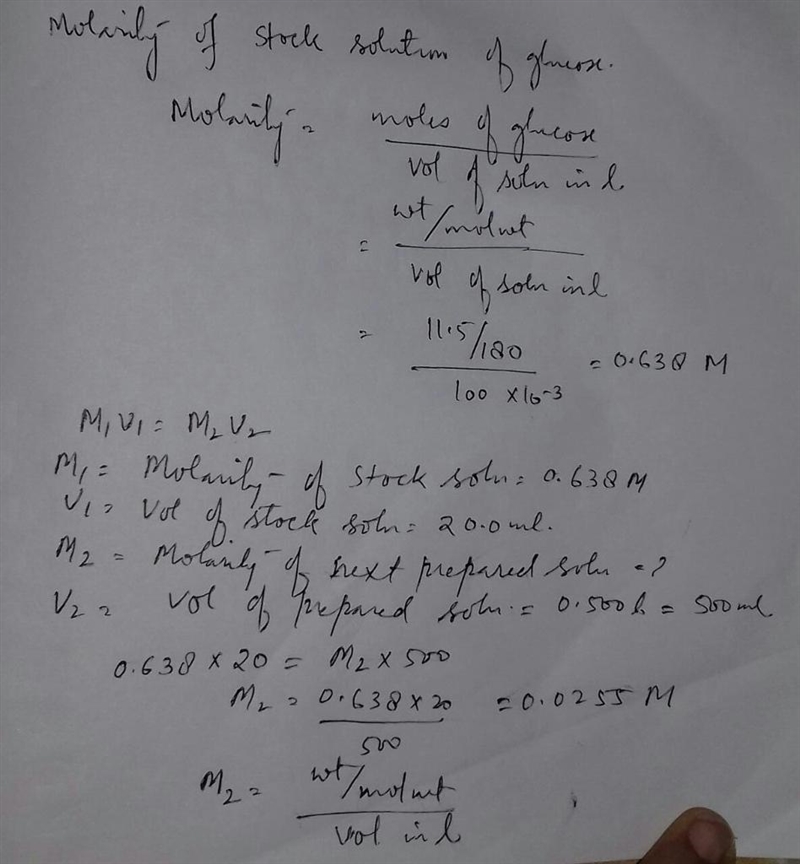 Molarity of stock solution of glucose.
Molarity = moles of glucose / vol of soln in l
= wt/molwt / vol of soln in l
= 11.5/180 / 100 x 10-3 = 0.638 M
M1V1 = M2V2
M1 = Molarity of stock soln = 0.638 M
V1 = Vol of stock soln = 20.0 ml.
M2 = Molarity of next prepared soln = ?
V2 = vol of prepared soln. = 0.500 l = 500 ml
0.638 x 20 = M2 x 500
M2 = 0.638 x 20 / 500 = 0.0255 M
M2 = wt/molwt / vol in l